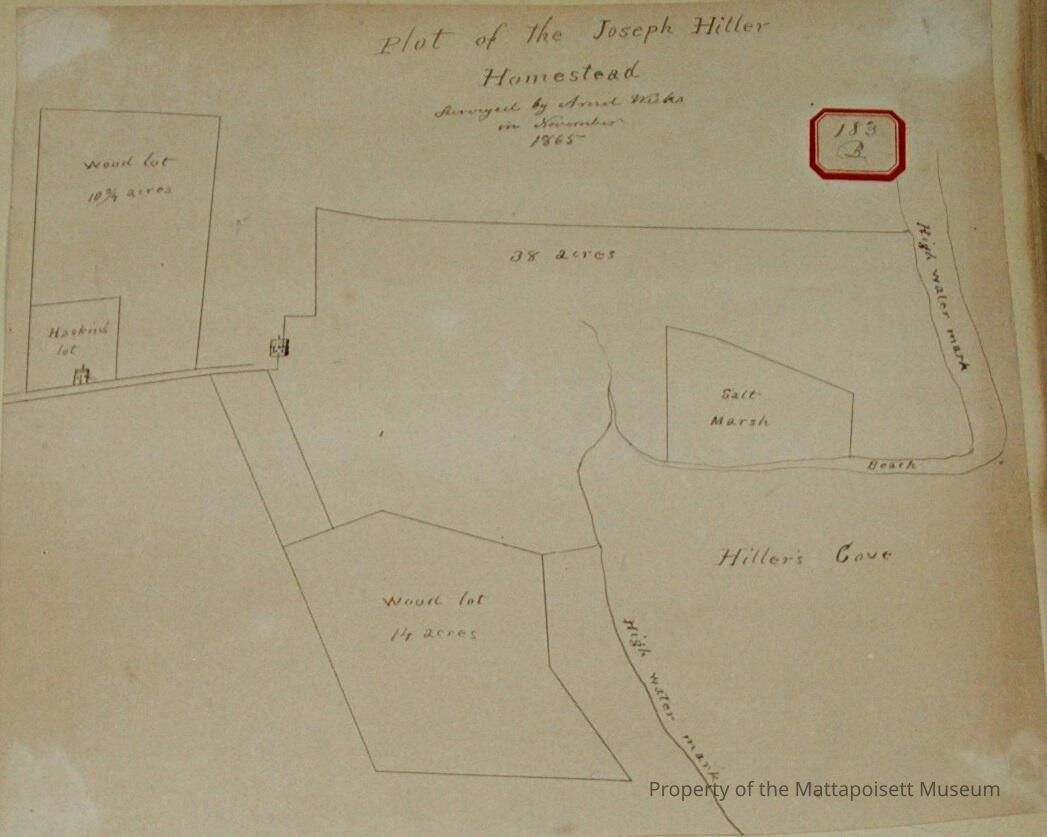 Plot of the Joseph Hiller
Homestead
Surveyed by Arvid Weeks
in November
1865
183
B
Wood lot
10 3/4 acres
38 acres
High water mark
Haskins
lot
Salt
Marsh
Beach
Hiller's Cove
Wood lot
14 acres
High water mark
Property of the Mattapoisett Museum